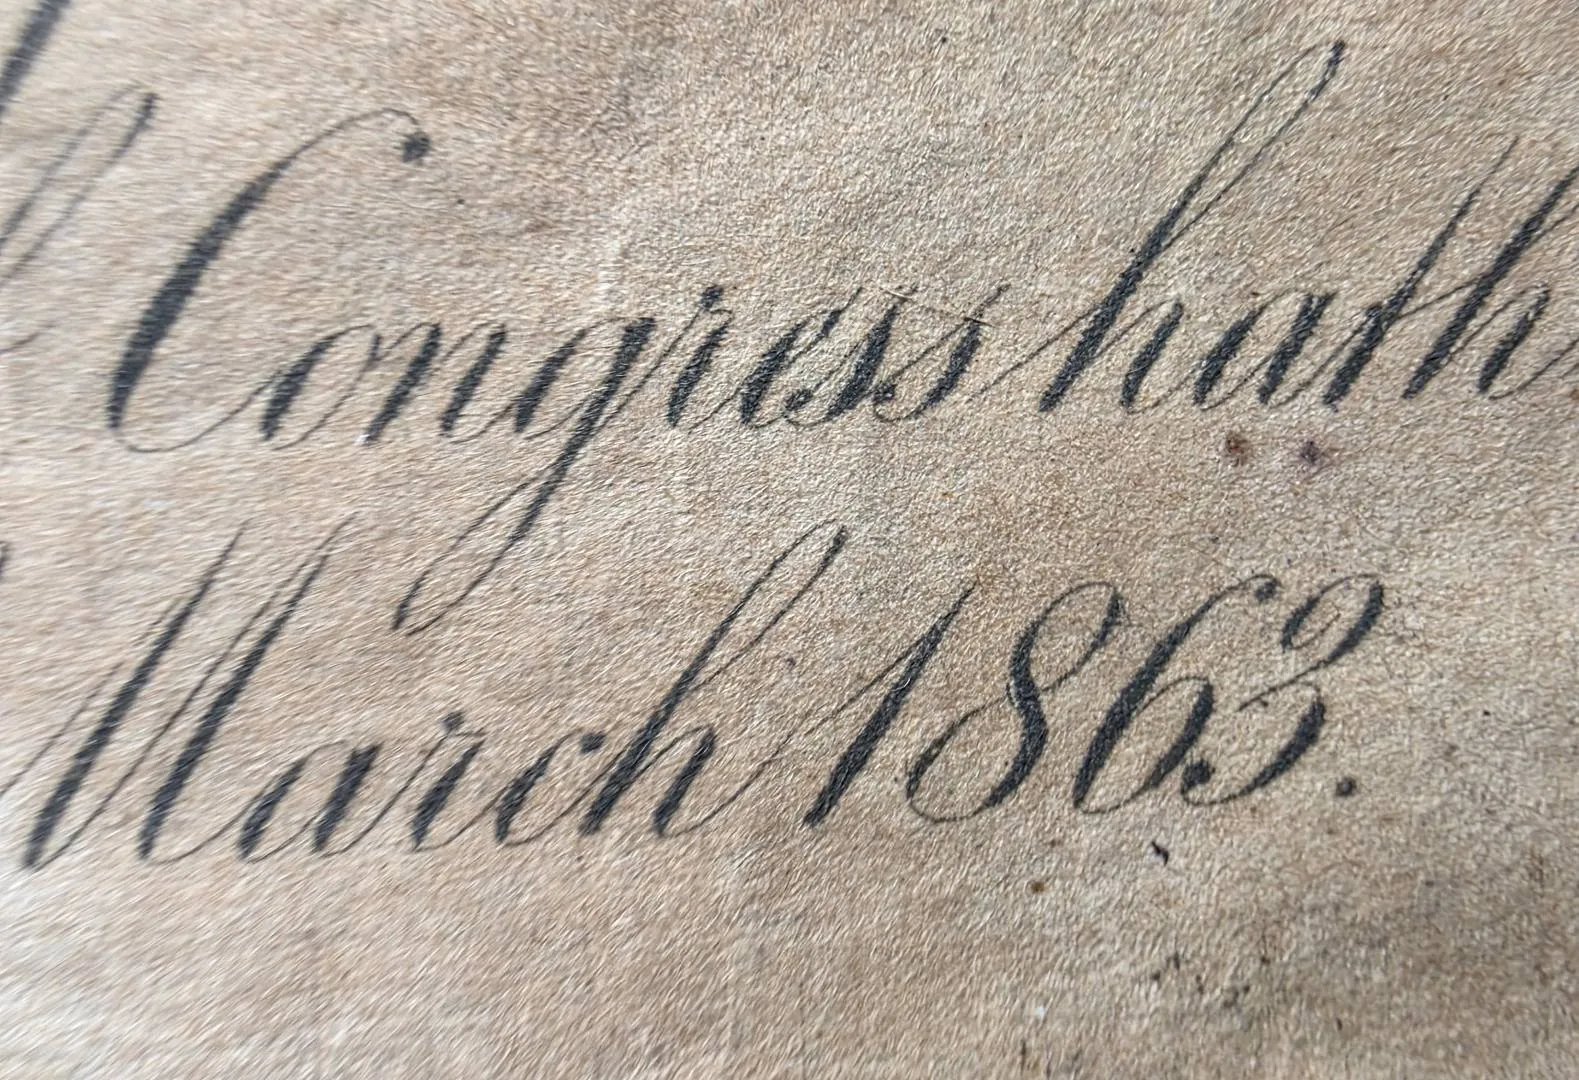 Congress hath
March 1863.